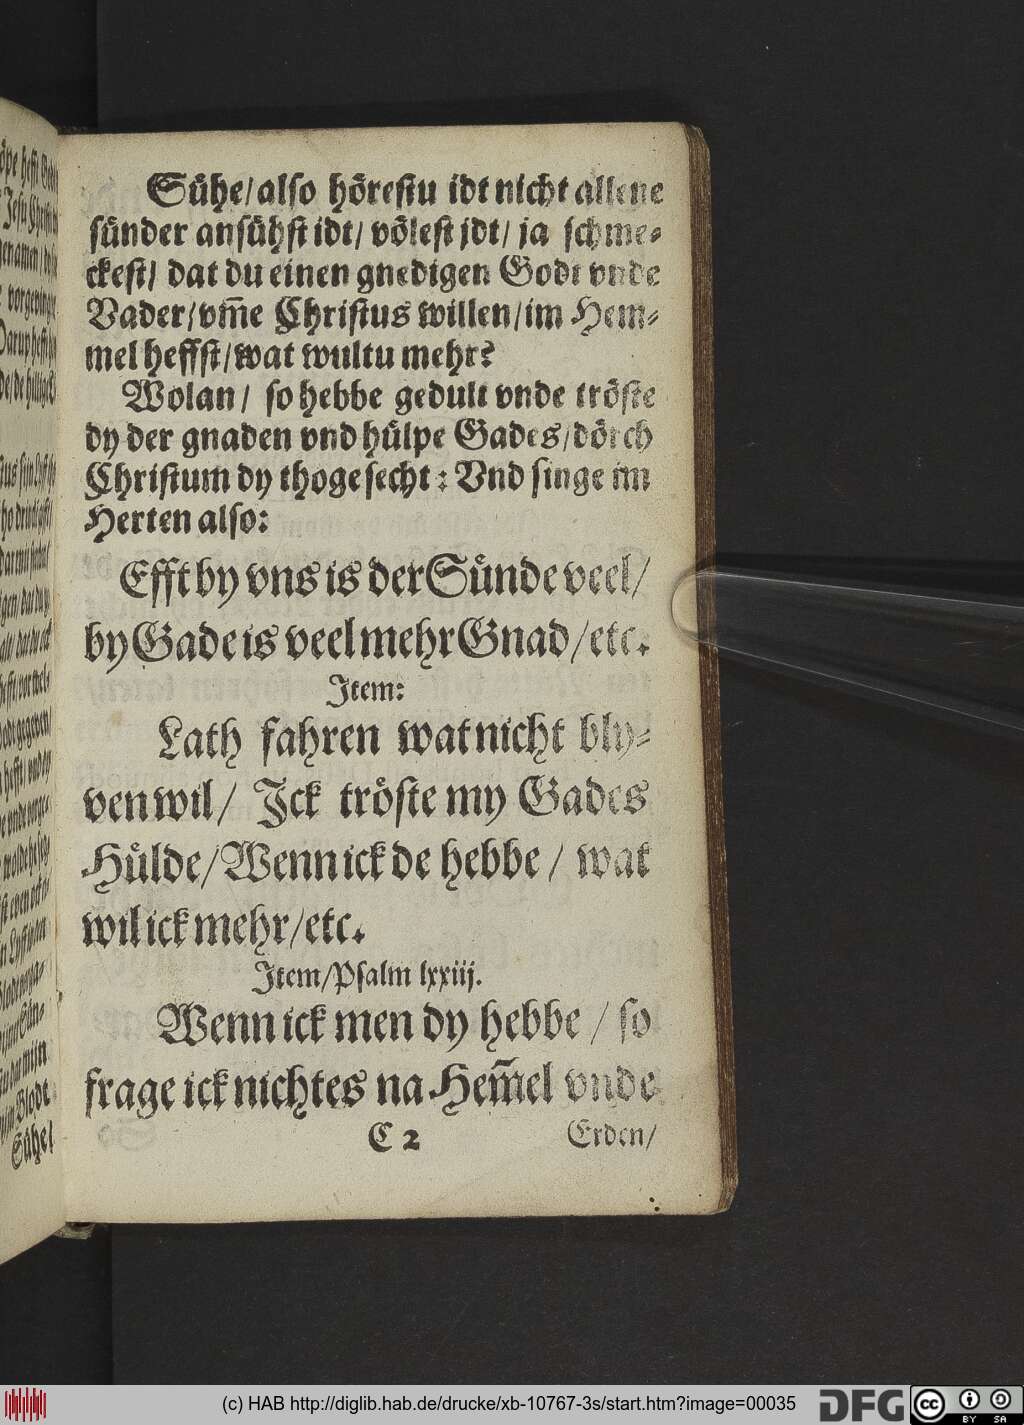 Sühe/ also hörestu idt nicht allene
sünder ansühst idt/ völest jdt/ ja schme-
ckest/ dat du einen gnedigen Godt vnde
Vader/ vm̃e Christus willen/ im Hem-
mel heffst/ wat wultu mehr?
Wolan/ so hebbe gedult vnde tröste
dy der gnaden vnd hülpe Gades/ dörch
Christum dy thogesecht: Vnd singe im
Herten also:
Efft by vns is der Sünde veel/
by Gade is veel mehr Gnad/ etc.
Item:
Lath fahren wat nicht bly-
ven wil/ Ick tröste my Gades
Hülde/ Wenn ick de hebbe/ wat
wil ick mehr/ etc.
Item/ Psalm lxxiij.
Wenn ick men dy hebbe/ so
frage ick nichtes na Hem̃el vnde
C 2 Erden/
(c) HAB http://diglib.hab.de/drucke/xb-10767-3s/start.htm?image=00035
DFG
cc
BY SA